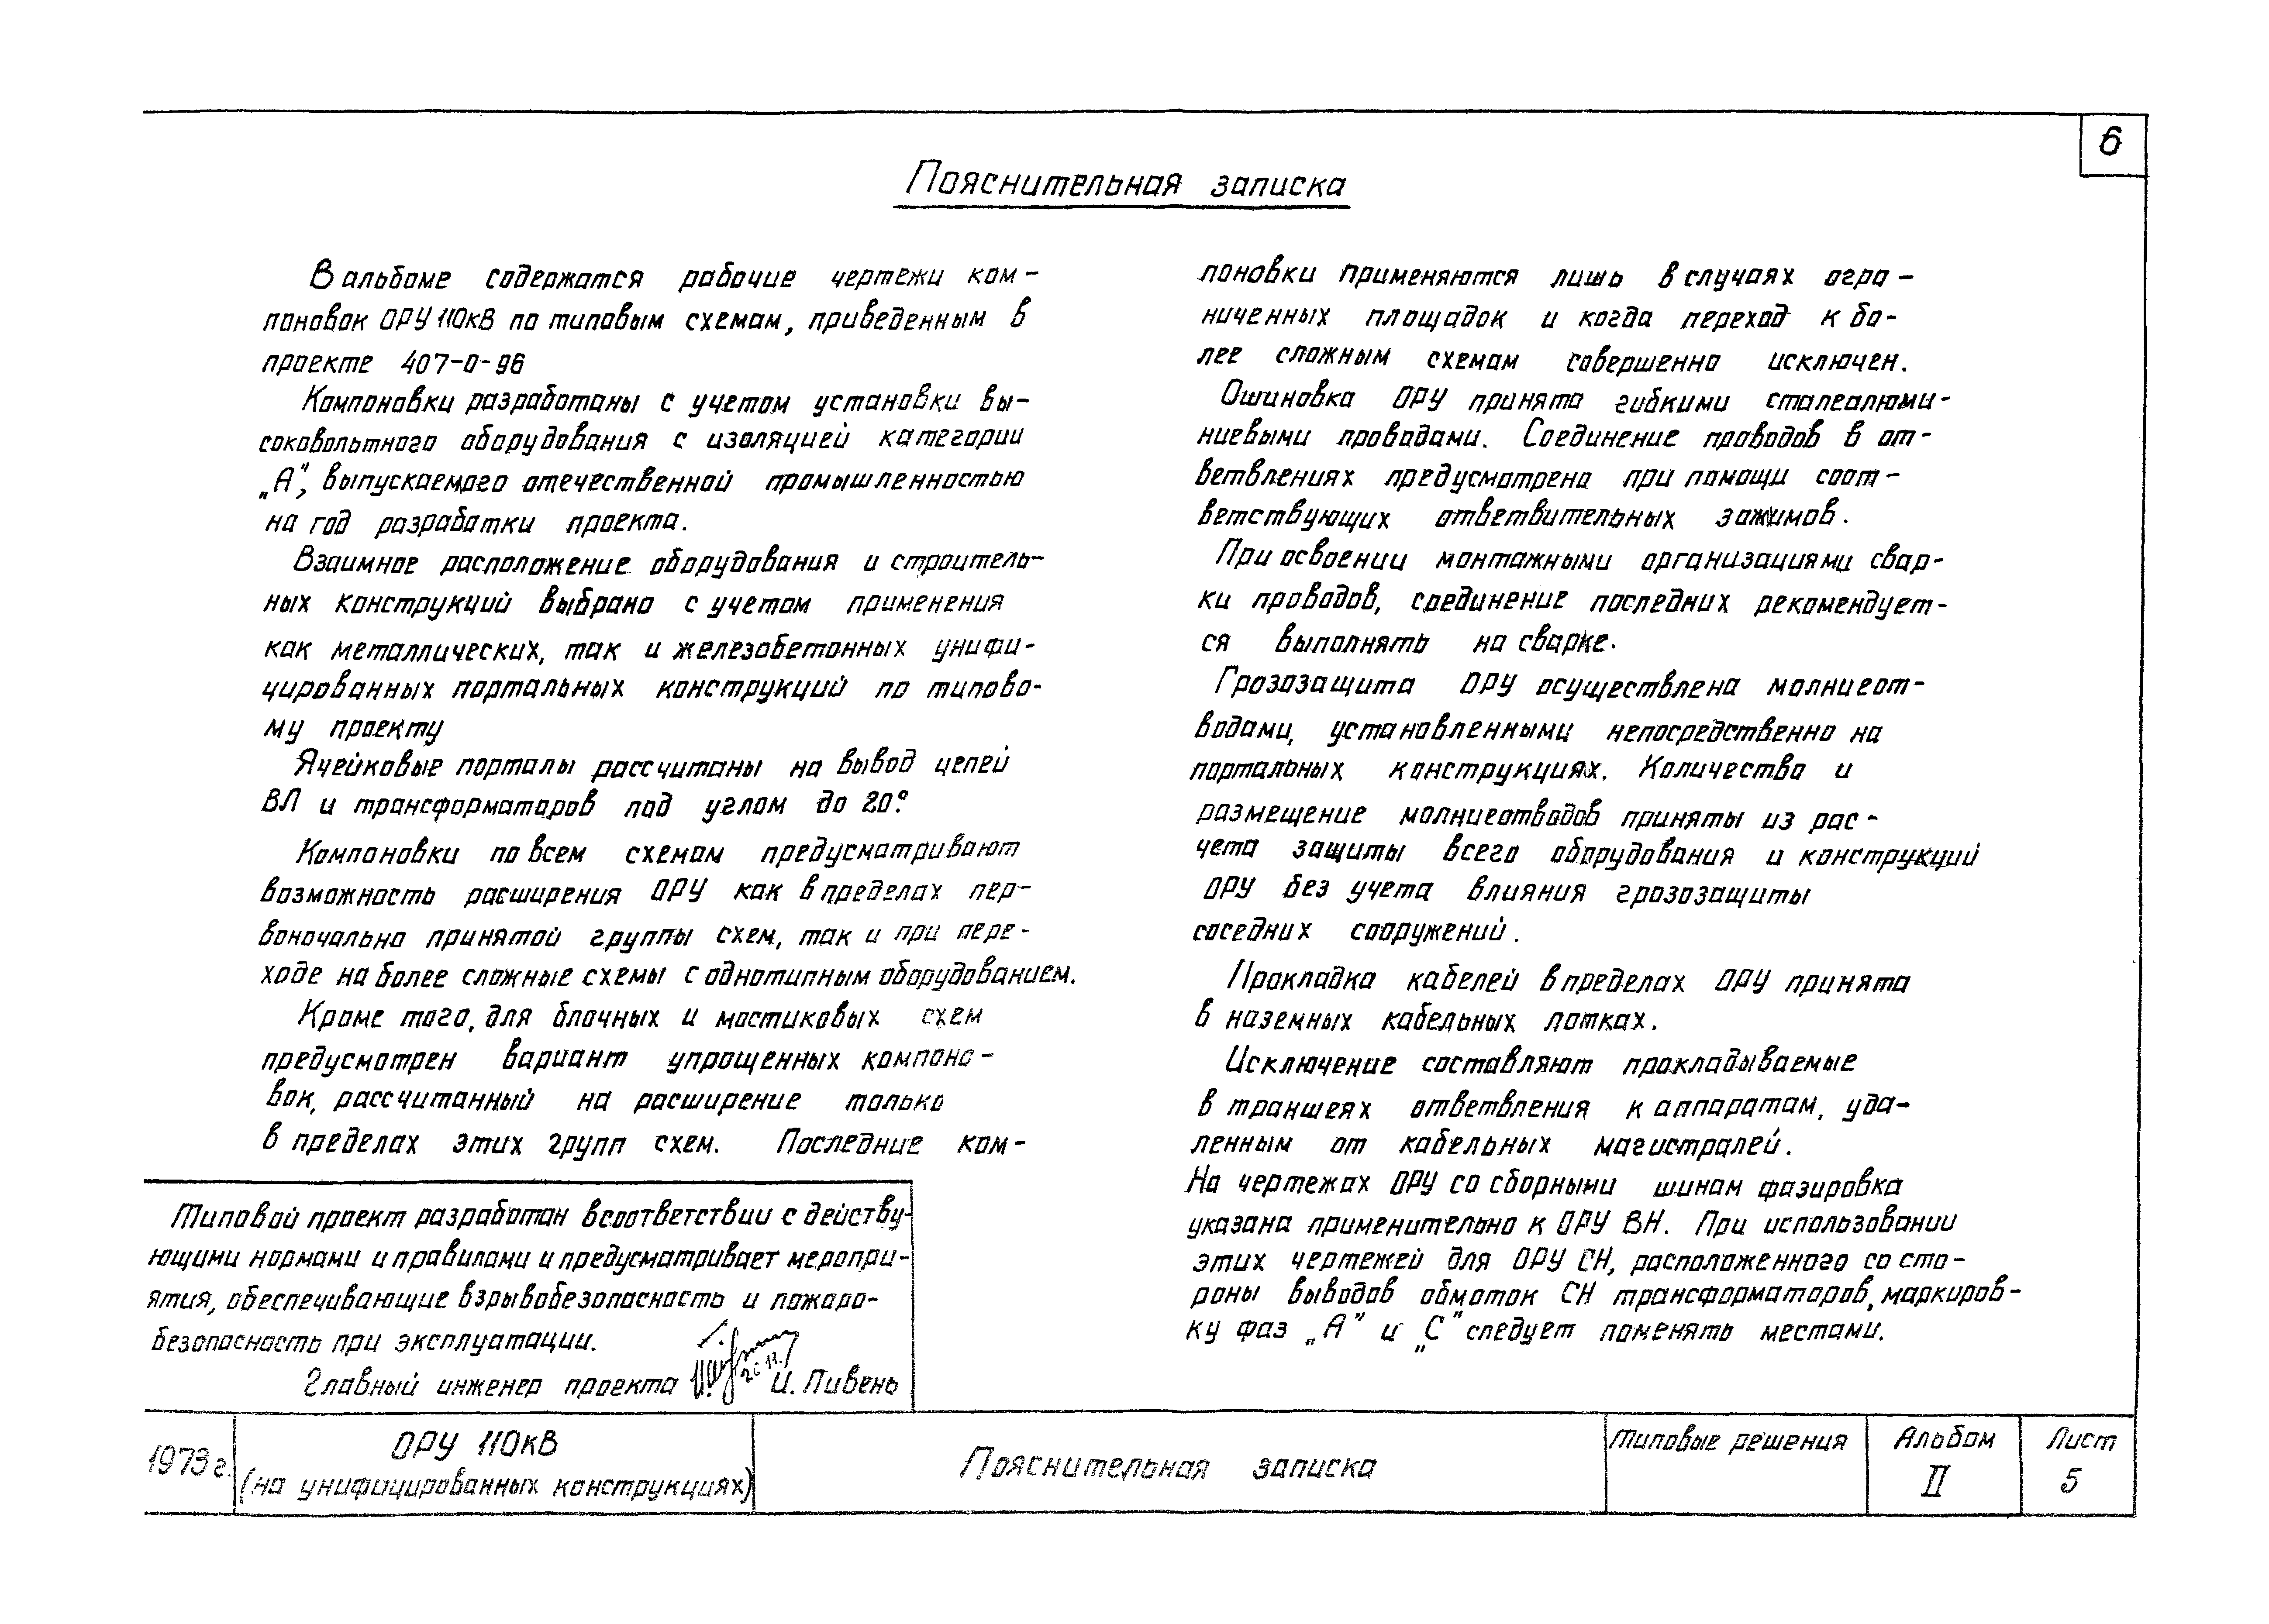 6
Пояснительная записка
В альбоме содержатся рабочие чертежи ком-
поновок ОРУ 110кВ по типовым схемам, приведенным в
проекте 407-0-96
Компоновки разработаны с учетом установки вы-
соковольтного оборудования с изоляцией категории
„А", выпускаемого отечественной промышленностью
на год разработки проекта.
Взаимное расположение оборудования и строитель-
ных конструкций выбрано с учетом применения
как металлических, так и железобетонных унифи-
цированных портальных конструкций по типово-
му проекту
Ячейковые порталы рассчитаны на вывод цепей
ВЛ и трансформаторов под углом до 20°.
Компоновки по всем схемам предусматривают
возможность расширения ОРУ как в пределах пер-
воначально принятой группы схем, так и при пере-
ходе на более сложные схемы с однотипным оборудованием.
Кроме того, для блочных и мостиковых схем
предусмотрен вариант упрощенных компоно-
вок, рассчитанный на расширение только
в пределах этих групп схем. Последние ком-
поновки применяются лишь в случаях огра-
ниченных площадок и когда переход к бо-
лее сложным схемам совершенно исключен.
Ошиновка ОРУ принята гибкими сталеалюми-
ниевыми проводами. Соединение проводов в от-
ветвлениях предусмотрена при помощи соот-
ветствующих ответвительных зажимов.
При освоении монтажными организациями свар-
ки проводов, соединение последних рекомендует-
ся выполнять на сварке.
Грозозащита ОРУ осуществлена молниеот-
водами, установленными непосредственно на
портальных конструкциях. Количество и
размещение молниеотводов приняты из рас-
чета защиты всего оборудования и конструкций
ОРУ без учета влияния грозозащиты
соседних сооружений.
Прокладка кабелей в пределах ОРУ принята
в наземных кабельных лотках.
Исключение составляют прокладываемые
в траншеях ответвления к аппаратам, уда-
ленным от кабельных магистралей.
На чертежах ОРУ со сборными шинам фазировка
указана применительно к ОРУ ВН. При использовании
этих чертежей для ОРУ СН, расположенного со сто-
роны выводов обмоток СН трансформаторов, маркиров-
ку фаз „А" и „С" следует поменять местами.
Типовой проект разработан в соответствии с действу-
ющими нормами и правилами и предусматривает меропри-
ятия, обеспечивающие взрывобезопасность и пожаро-
безопасность при эксплуатации.
Главный инженер проекта И. Пивень
1973 г.
ОРУ 110кВ
(на унифицированных конструкциях)
Пояснительная записка
Типовые решения
Альбом
II
Лист
5